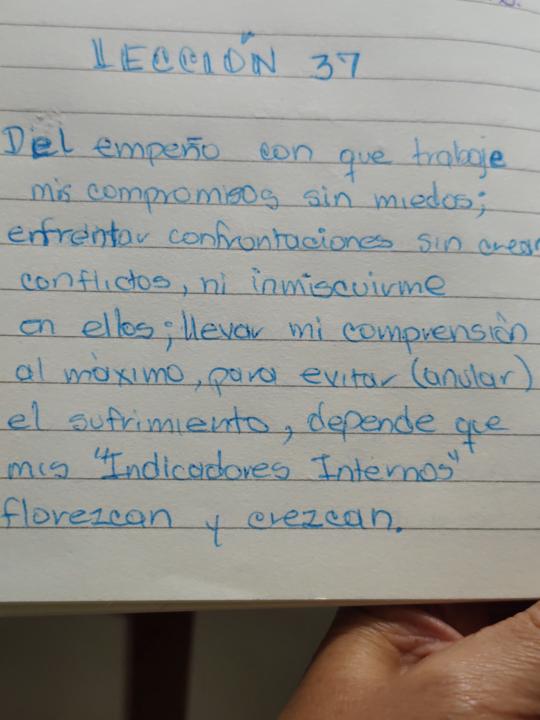 LECCIÓN 37
Del empeño con que trabaje
mis compromisos sin miedos;
enfrentar confrontaciones sin crear
conflictos, ni inmiscuirme
en ellos; llevar mi comprensión
al máximo, para evitar (anular)
el sufrimiento, depende que
mis "Indicadores Internos"
florezcan y crezcan.